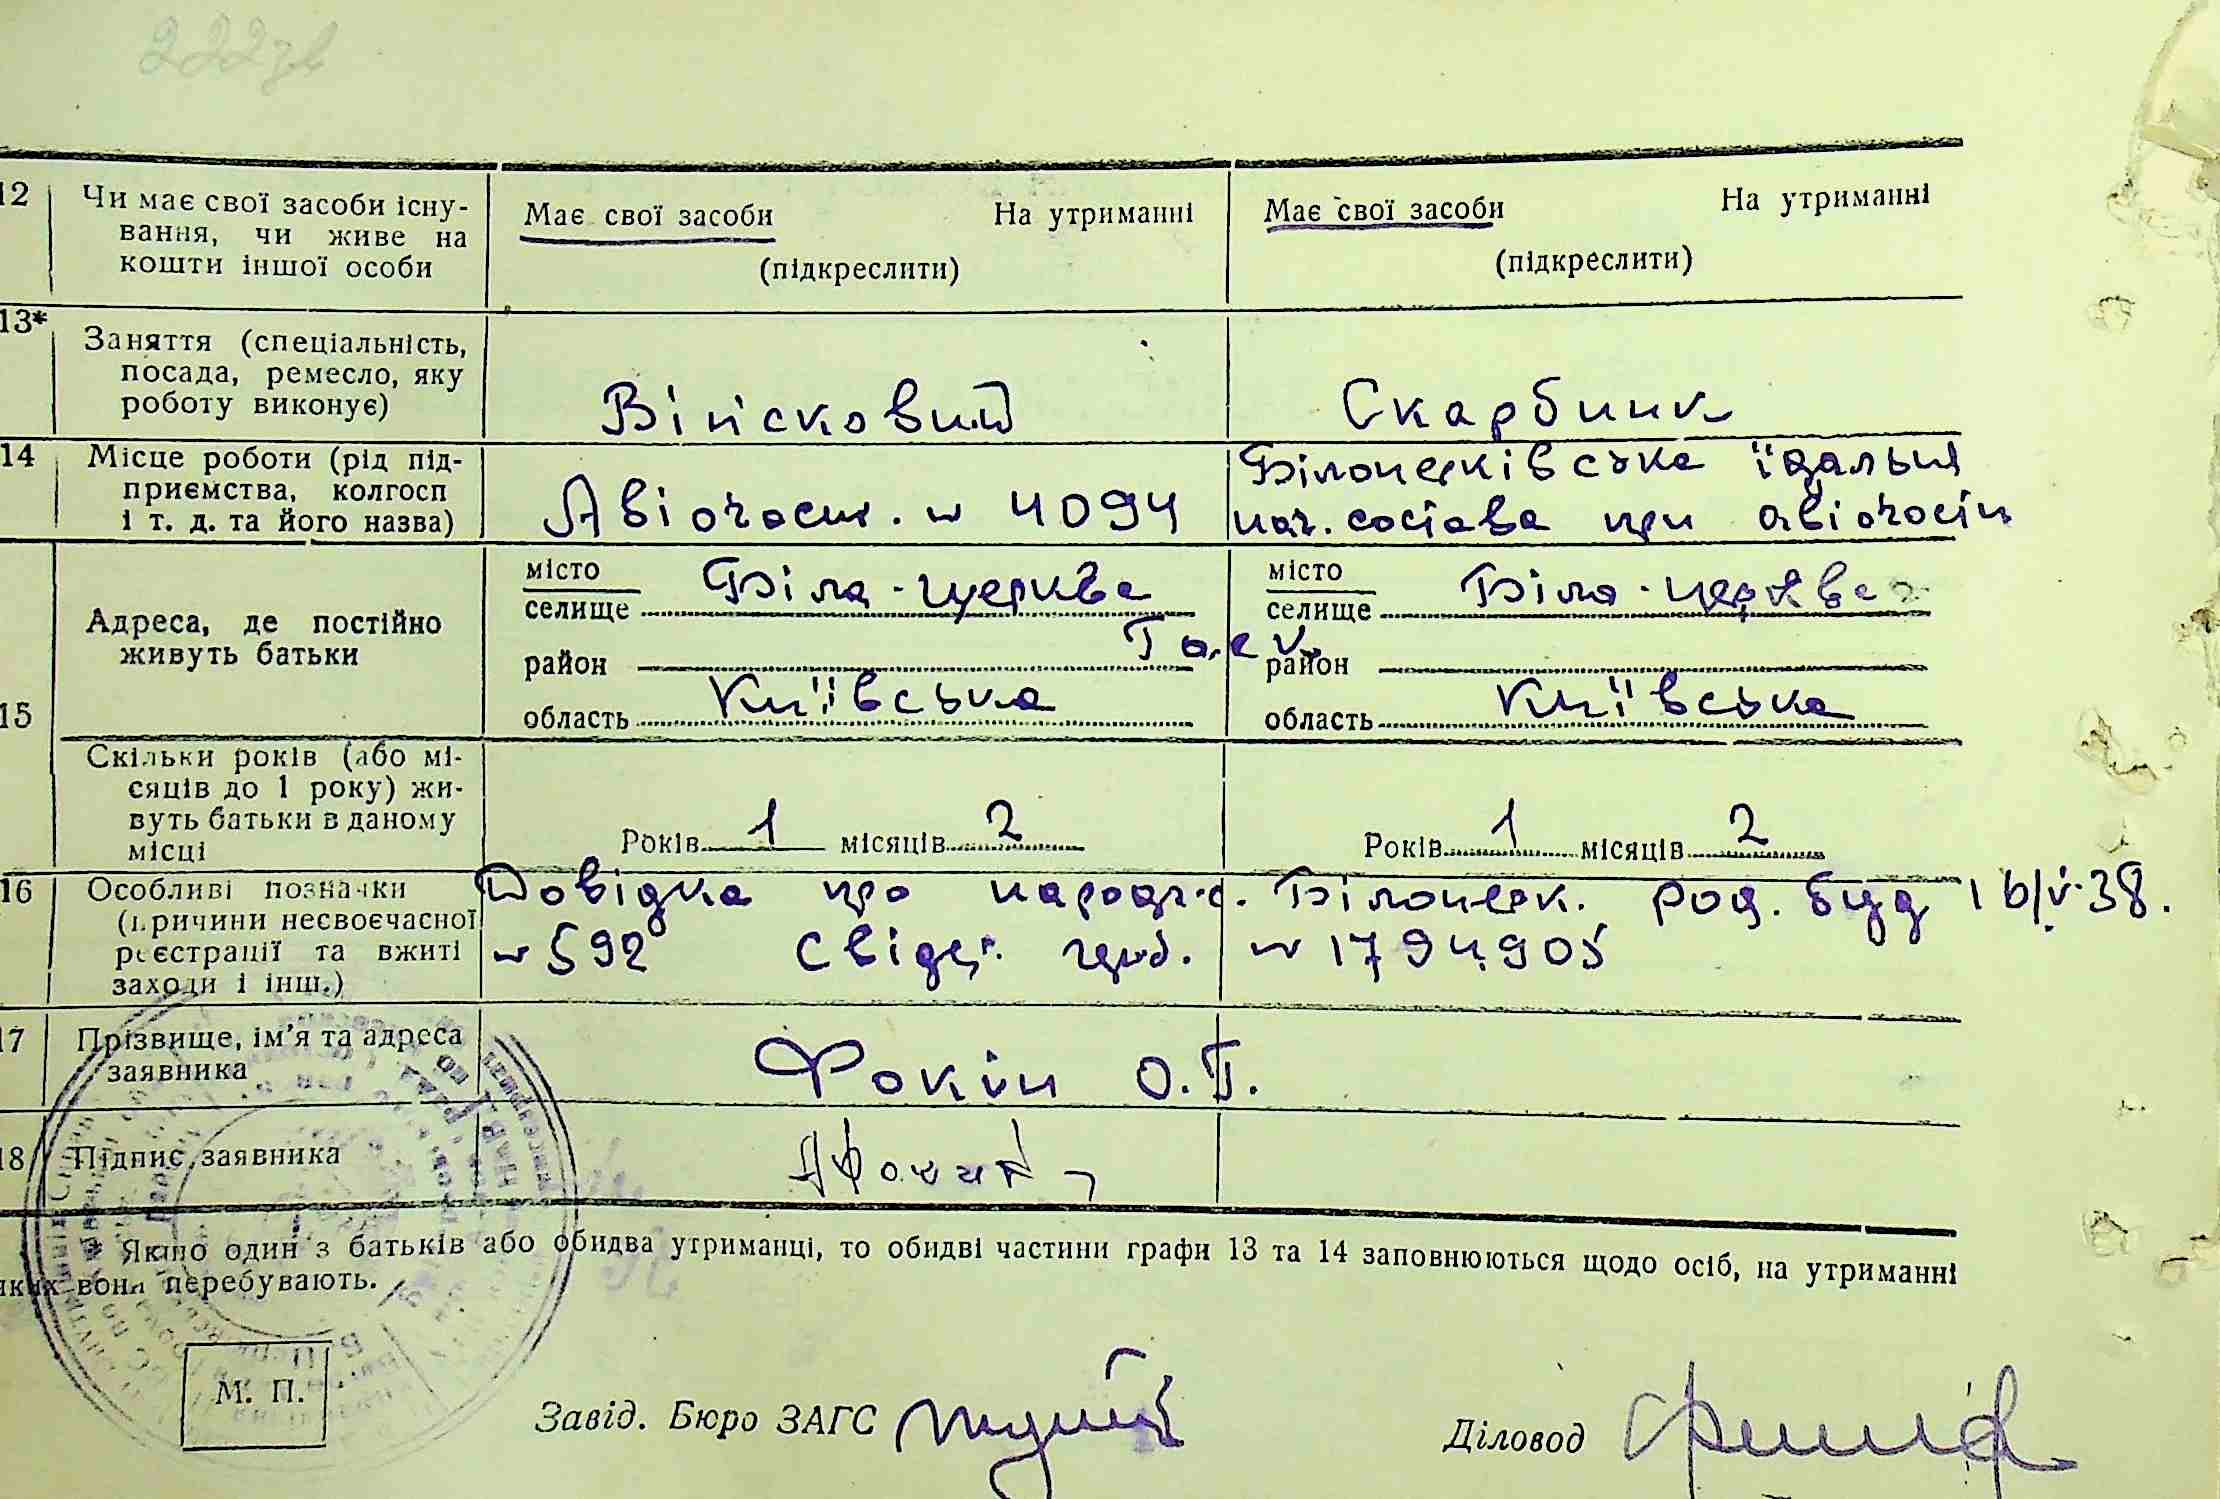 222зв
12 Чи має свої засоби існу-
вання, чи живе на
кошти іншої особи
Має свої засоби На утриманні
(підкреслити)
Має свої засоби На утриманні
(підкреслити)
13* Заняття (спеціальність,
посада, ремесло, яку
роботу виконує)
Військовий
Скарбник
14 Місце роботи (рід під-
приємства, колгосп
і т. д. та його назва)
Авіочаст. № 4094
Білоцерківська їдальня
нач. состава при авіочасти
15 Адреса, де постійно
живуть батьки
місто
селище Біла-церква
район
область Київська
місто
селище Біла-церква
район
область Київська
Скільки років (або мі-
сяців до 1 року) жи-
вуть батьки в даному
місці
Років 1 місяців 2
Років 1 місяців 2
16 Особливі позначки
(причини несвоєчасної
реєстрації та вжиті
заходи і інш.)
Довідка про народж. Білоцерк. род. буд 16/V-38.
№ 592 Свідоц. № 1794905
17 Прізвище, ім'я та адреса
заявника
Фокін О.Г.
18 Підпис заявника
Якщо один з батьків або обидва утриманці, то обидві частини графи 13 та 14 заповнюються щодо осіб, на утриманні
яких вони перебувають.
М. П.
Завід. Бюро ЗАГС
Діловод